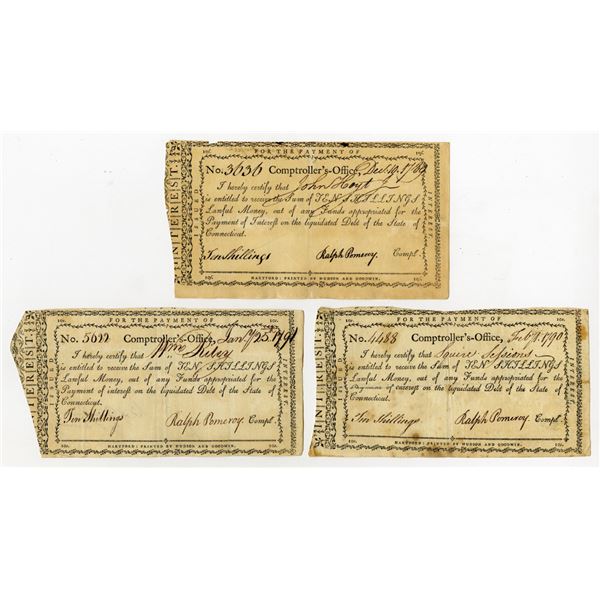 10s. FOR THE PAYMENT OF 10s.
ISSUED
INTEREST.
INTEREST.
No. 3636 Comptroller's-Office, Dec. 10. 1789
I hereby certify that John Hoyt Jr
is entitled to receive the Sum of TEN SHILLINGS
Lawful Money, out of any Funds appropriated for the
Payment of Interest on the liquidated Debt of the State of
Connecticut.
Ten Shillings Ralph Pomeroy. Compt.
10s. HARTFORD: PRINTED BY HUDSON AND GOODWIN. 10s.
10s. FOR THE PAYMENT OF 10s.
ISSUED
INTEREST.
INTEREST.
No. Comptroller's-Office, Jany 25. 1791
I hereby certify that Wm
is entitled to receive the Sum of TEN SHILLINGS
Lawful Money, out of any Funds appropriated for the
Payment of interest on the liquidated Debt of the State of
Connecticut.
Ten Shillings Ralph Pomeroy. Compt.
10s. HARTFORD: PRINTED BY HUDSON AND GOODWIN. 10s.
10s. FOR THE PAYMENT OF 10s.
ISSUED
INTEREST.
INTEREST.
No. 4488 Comptroller's-Office, Feby 9. 1790
I hereby certify that Squire Sessions
is entitled to receive the Sum of TEN SHILLINGS
Lawful Money, out of any Funds appropriated for the
Payment of interest on the liquidated Debt of the State of
Connecticut.
Ten Shillings Ralph Pomeroy. Compt.
10s. HARTFORD: PRINTED BY HUDSON AND GOODWIN. 10s.